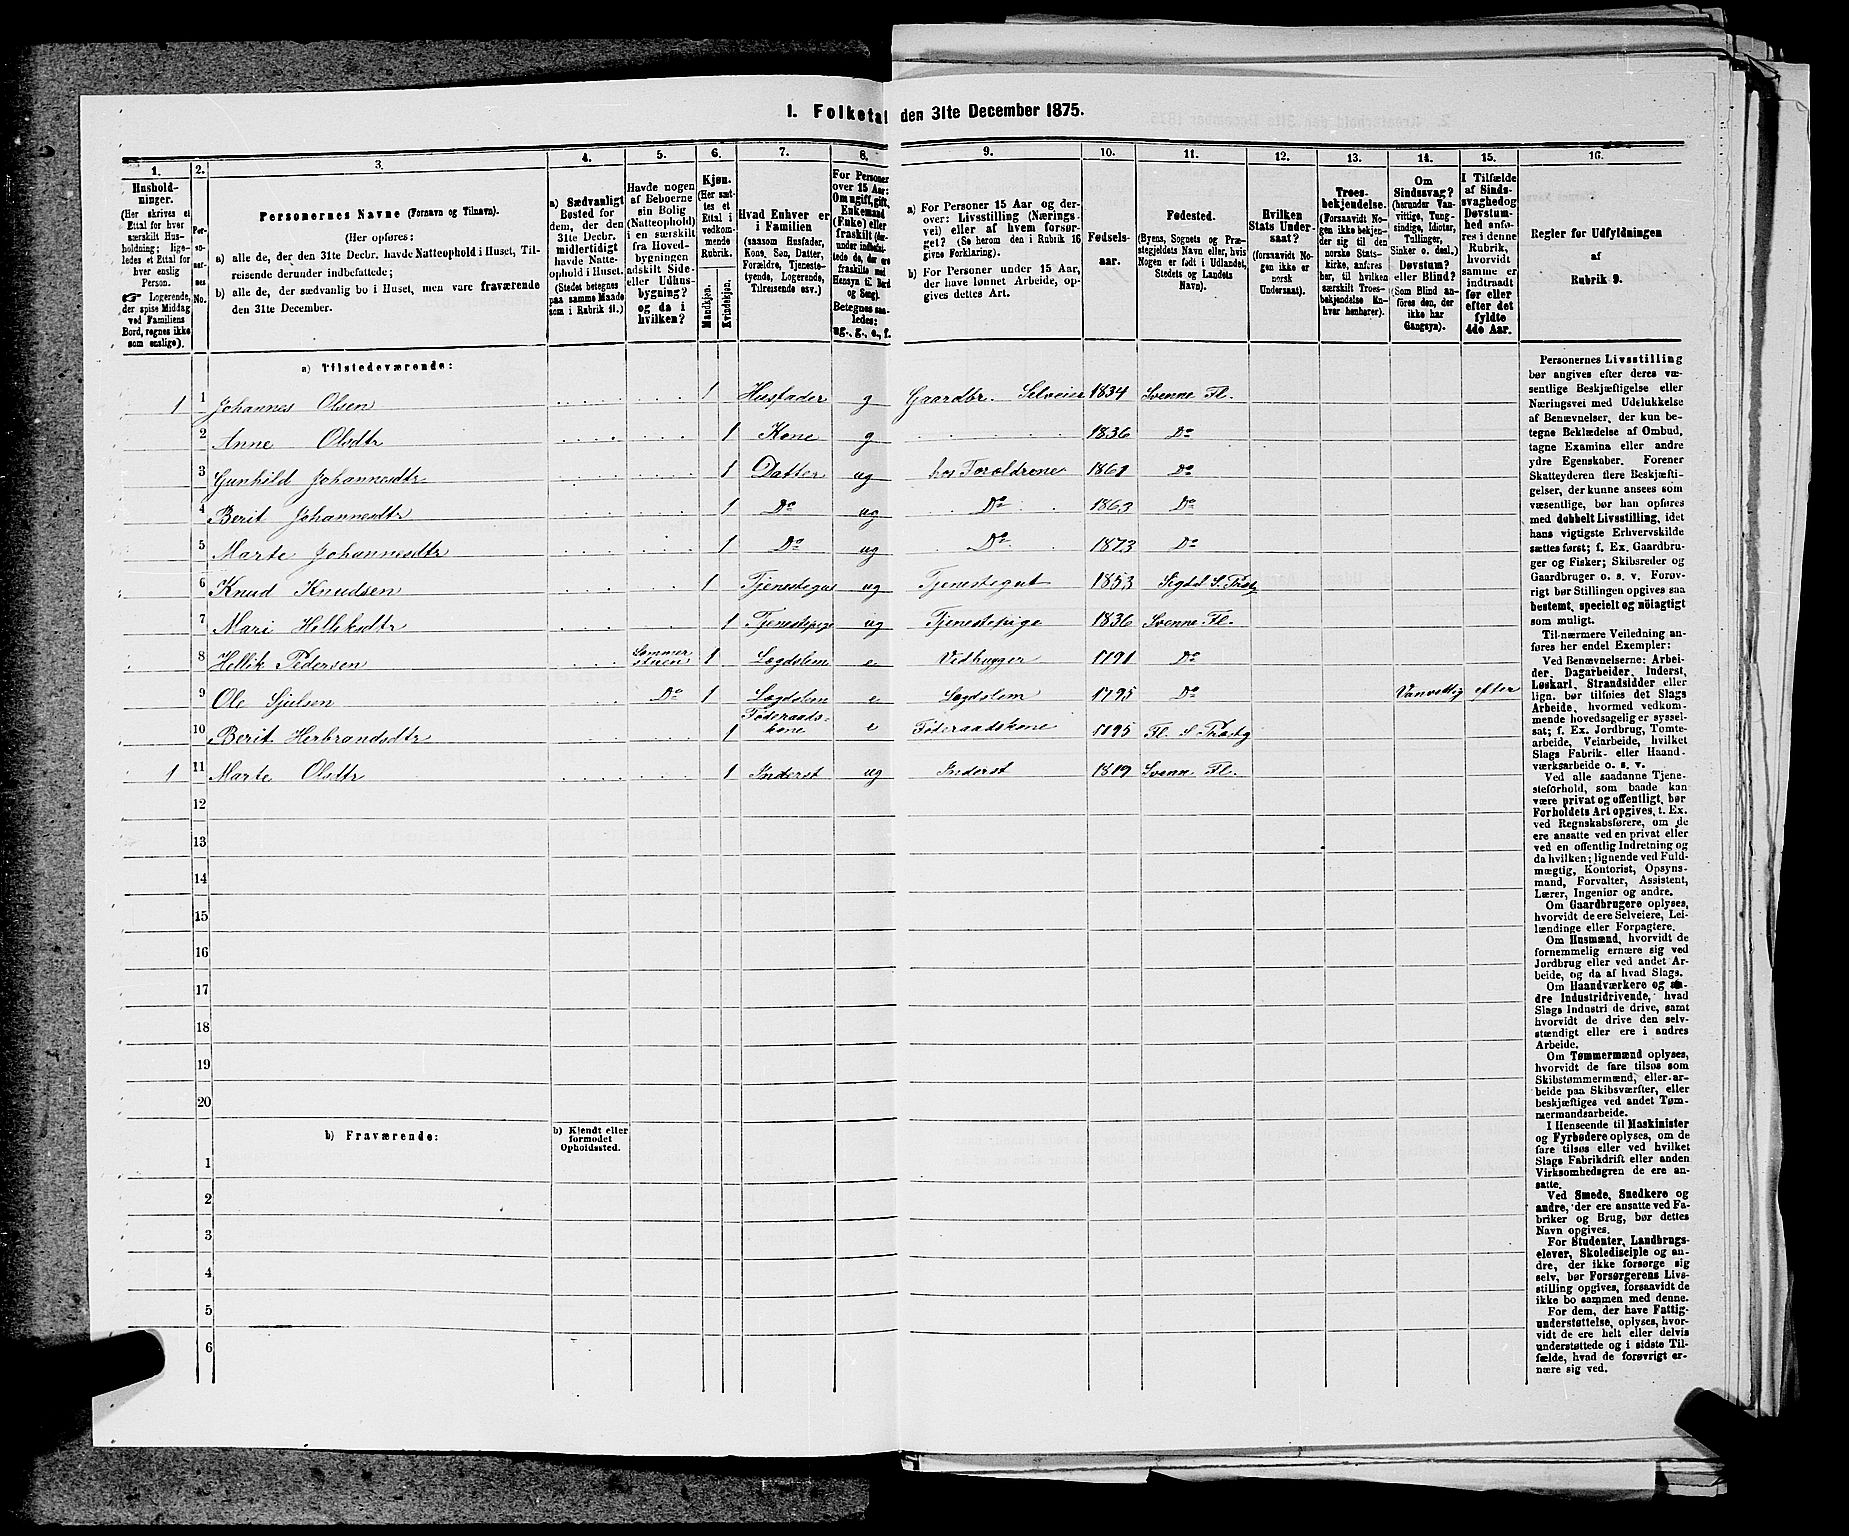 1. Folketal den 31te December 1875.
1. 2. 3. 4. 5. 6. 7. 8. 9. 10. 11. 12. 13. 14. 15. 16.
Hushold-
ninger.
(Her skrives et
Ettal for hver
særskilt Hus-
holdning; lige-
ledes et Ettal for
hver enslig
Person.
☞ Logerende,
der spise Middag
ved Familiens
Bord, regnes ikke
som enslige).
Per-
so-
ner-
nes
No.
Personernes Navne (Fornavn og Tilnavn).
(Her opføres:
a) alle de, der den 31te Decbr. havde Natteophold i Huset, Til-
reisende derunder indbefattede;
b) alle de, der sædvanlig bo i Huset, men vare fraværende
den 31te December.
a) Sædvanligt
Bosted for
dem, der den
31te Decbr.
midlertidigt
havde Natte-
ophold i Huset.
(Stedet betegnes
paa samme Maade
som i Rubrik 11.)
Havde nogen
af Beboerne
sin Bolig
(Natteophold)
i en særskilt
fra Hoved-
bygningen
adskilt Side-
eller Udhus-
bygning?
og da i
hvilken?
Kjøn.
(Her sæt-
tes et
Ettal i
vedkom-
mende
Rubrik.
Mandkjøn.
Kvindekjøn.
Hvad Enhver er
i Familien
(saasom Husfader,
Kone, Søn, Datter,
Forældre, Tjeneste-
tyende, Logerende,
Tilreisende osv.)
For Personer
over 15 Aar:
Om ugift, gift,
Enkemand
(Enke) eller
fraskilt (her-
under indbefat-
tede de, der ere
fraskilte med
Hensyn til Bord
og Seng).
Betegnes saa-
ledes:
ug., g., e., f.
a) For Personer 15 Aar og der-
over: Livsstilling (Nærings-
vei) eller af hvem forsør-
get? (Se herom den i Rubrik 16
givne Forklaring).
b) For Personer under 15 Aar,
der have lønnet Arbeide, op-
gives dettes Art.
Fødsels-
aar.
Fødested.
(Byens, Sognets og Præ-
stegjeldets Navn eller, hvis
Nogen er født i Udlandet,
Stedets og Landets
Navn).
Hvilken
Stats Under-
saat?
(forsaavidt No-
gen ikke er
norsk
Undersaat).
Troes-
bekjendelse.
(Forsaavidt No-
gen ikke bekjen-
der sig til den
norske Stats-
kirke, anføres
her, til hvilken
særskilt Troes-
bekjendelse En-
hver henhører).
Om
Sindssvag?
(herunder Van-
vittige, Tung-
sindige, Idioter,
Tullinger,
Sinker o. desl.)
Døvstum?
eller Blind?
(Som Blind an-
føres den, der
ikke har
Gangsyn).
I Tilfælde
af Sinds-
svaghed og
Døvstum-
hed anfø-
res i denne
Rubrik,
hvorvidt
samme er
indtraadt
før eller
efter det
fyldte
4de Aar.
Regler for Udfyldningen
af
Rubrik 9.
a) Tilstedeværende:
1 1 Johannes Olsen 1 Husfader g Gaardbr. Selveier 1834 Svenne Fl.
2 Anne Olsdtr 1 Kone g 1836 Do
3 Gunhild Johannesdtr 1 Datter ug hos Forældrene 1861 Do
4 Berit Johannesdtr 1 Do ug Do 1863 Do
5 Marte Johannesdtr 1 Do ug Do 1873 Do
6 Knud Knudsen 1 Tjenestegut ug Tjenestegut 1853 Sigdal S.
7 Mari Helliksdtr 1 Tjenestepige ug Tjenestepige 1836 Svenne Fl.
8 Hellik Pedersen Sommer
stuen 1 Lægdslem e Vedhugger 1791 Do
9 Ole Sjulsen Do 1 Lægdslem e Lægdslem 1795 Do Vanvittig efter
10 Berit Herbrandsdtr 1 Føderaads-
kone e Føderaadskone 1795 Fl. S
1 11 Marte Olsdtr 1 Inderst ug Inderst 1819 Svenne Fl.
12
13
14
15
16
17
18
19
20
b) Fraværende:
b) Kjendt eller
formodet
Opholdssted.
1
2
3
4
5
6
Personernes Livsstilling
bør angives efter deres væ-
sentlige Beskjæftigelse eller
Næringsvei med Udelukkelse
af Benævnelser, der kun be-
tegne Beklædelse af Ombud,
tagne Examina eller andre
ydre Egenskaber. Forener
Skatteyderen flere Beskjæfti-
gelser, der kunne ansees som
væsentlige, bør han opføres
med dobbelt Livsstilling, idet
hans vigtigste Erhvervskilde
sættes først; f. Ex. Gaardbru-
ger og Fisker; Skibsreder og
Gaardbruger o. s. v. Forøv-
rigt bør Stillingen opgives saa
bestemt, specielt og nöiagtigt
som muligt.
Til nærmere Veiledning an-
føres her endel Exempler:
Ved Benævnelserne: Arbei-
der, Dagarbeider, Inderst,
Løskarl, Strandsidder eller
lign. bør tilføies det Slags
Arbeide, hvormed vedkom-
mende hovedsagelig er syssel-
sat; f. Ex. Jordbrug, Tomte-
arbeide, Veiarbeide, hvilket
Slags Fabrik- eller Haand-
værksarbeide o. s. v.
Ved alle saadanne Tjene-
steforhold, som baade kan
være privat og offentligt, bør
Forholdets Art opgives, t. Ex.
ved Regnskabsførere, om de
ere ansatte ved en privat eller
ved en offentlig Indretning og
da hvilken; lignende ved Fuld-
mægtig, Kontorist, Opsyns-
mand, Forvalter, Assistent,
Lærer, Ingeniør og andre.
Om Gaardbrugere oplyses,
hvorvidt de ere Selveiere, Lei-
lændinge eller Forpagtere.
Om Husmænd, hvorvidt de
fornemmelig ernære sig ved
Jordbrug eller ved andet Ar-
beide, og da af hvad Slags.
Om Haandværkere og an-
dre Industridrivende, hvad
Slags Industri de drive, samt
hvorvidt de drive den selv-
stændigt eller ere i andres
Arbeide.
Om Tømmermænd oplyses,
hvorvidt de fare tilsøs som
Skibstømmermænd, eller ar-
beide paa Skibsværfter, eller
beskjæftiges ved andet Tøm-
mermandsarbeide.
I Henseende til Maskinister
og Fyrbødere oplyses, om de
fare tilsøs eller ved hvilket
Slags Fabrikdrift eller anden
Virksomhedsgren de ere an-
satte.
Ved Smede, Snedkere og
andre, der ere ansatte ved Fa-
briker og Brug, bør dettes
Navn opgives.
For Studenter, Landbrugs-
elever, Skoledisciple og an-
dre, der ikke forsørge sig
selv, bør Forsørgerens Livs-
stilling opgives, forsaavidt de
ikke bo sammen med denne.
For dem, der have Fattig-
understøttelse, oplyses, hvor-
vidt de ere helt eller delvis
understøttede og i sidste Til-
fælde, hvad de forøvrigt er-
nære sig ved.